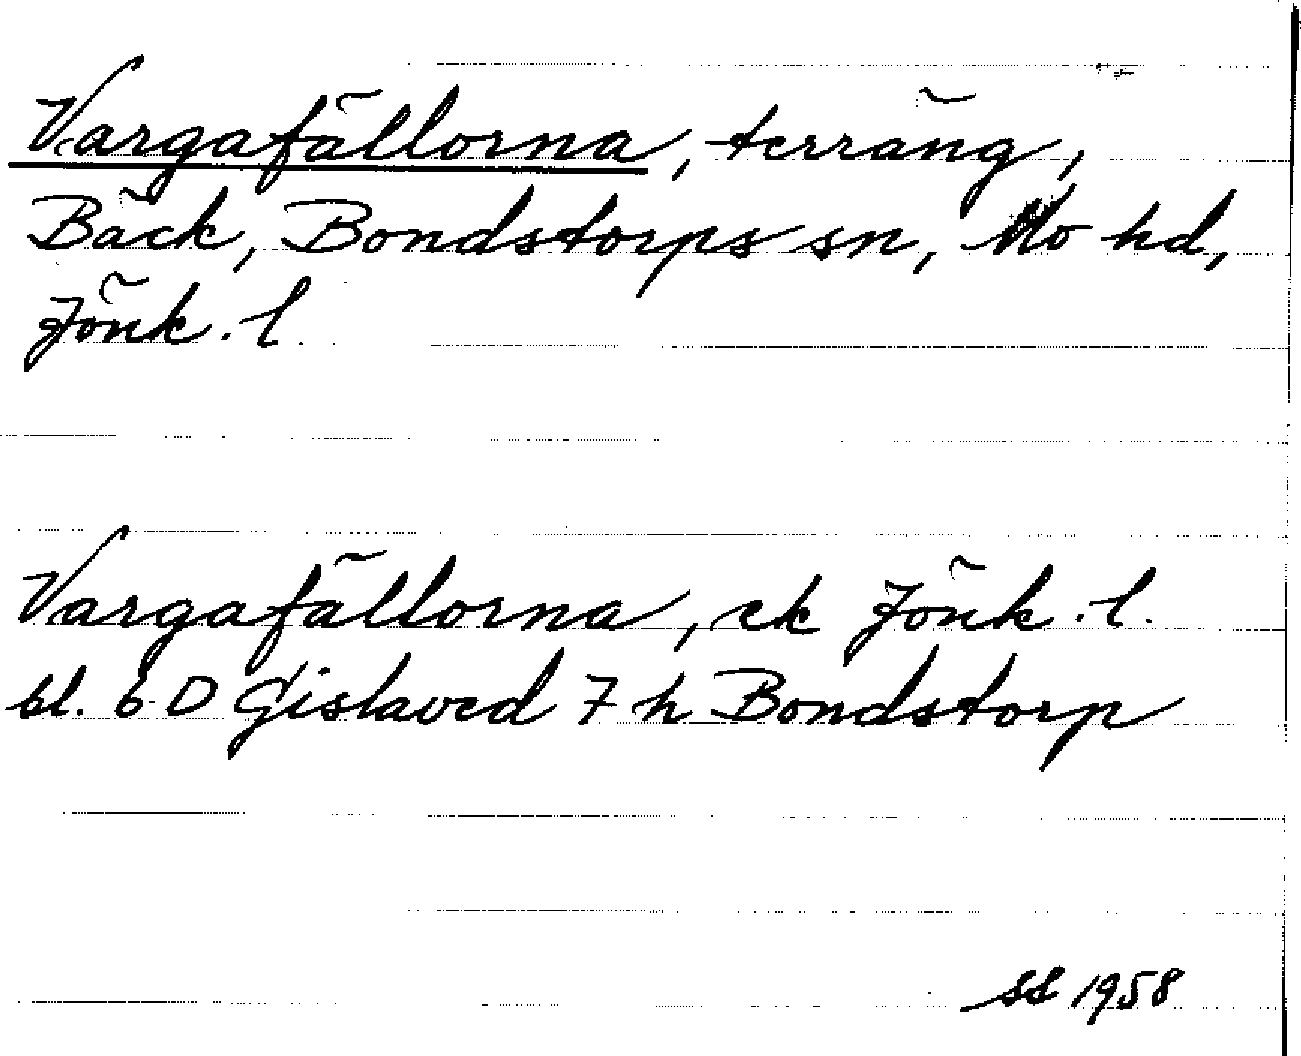 Vargafällorna, terräng,
Bäck, Bondstorps sn, Mo hd,
Jönk. l.
Vargafällorna, ek Jönk. l.
bl. 6 D Gislaved 7 h Bondstorp
SS 1958